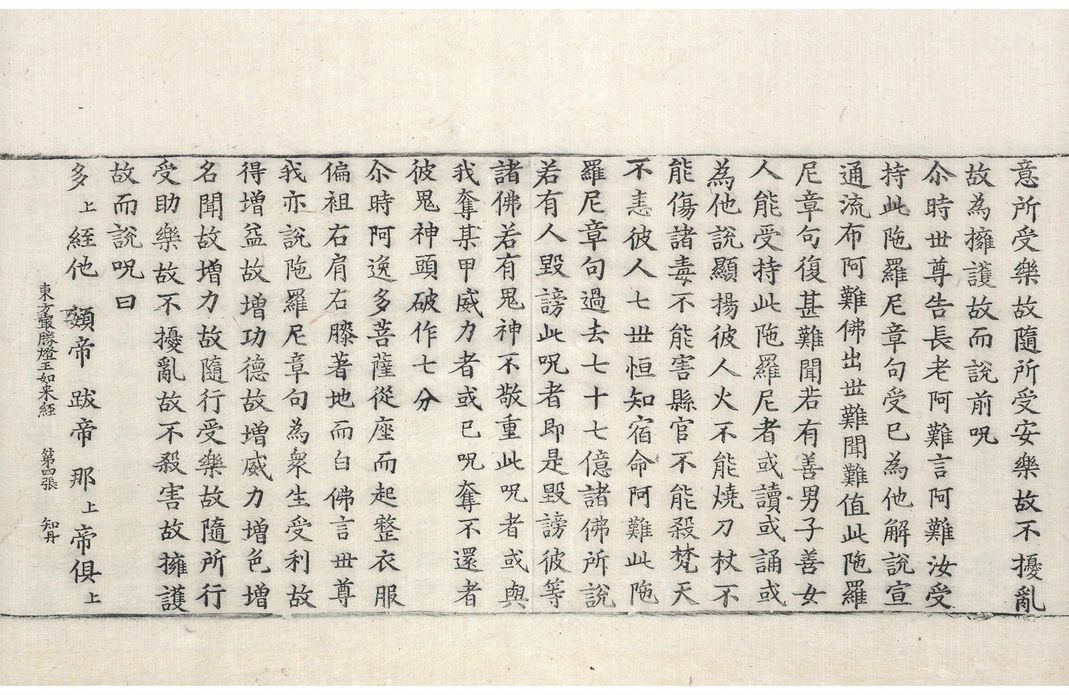 意所受樂故隨所受安樂故不擾亂
故為擁護故而說前呪
尒時世尊告長老阿難言阿難汝受
持此陁羅尼章句受已為他解說宣
通流布阿難佛出世難聞難值此陁羅
尼章句復甚難聞若有善男子善女
人能受持此陁羅尼者或讀或誦或
為他說顯揚彼人火不能燒刀杖不
能傷諸毒不能害縣官不能殺梵天
不恚彼人七世恒知宿命阿難此陁
羅尼章句過去七十七億諸佛所說
若有人毀謗此呪者即是毀謗彼等
諸佛若有鬼神不敬重此呪者或與
我奪某甲威力者或已呪奪不還者
彼鬼神頭破作七分
尒時阿逸多菩薩從座而起整衣服
偏袒右肩右膝著地而白佛言世尊
我亦說陁羅尼章句為衆生受利故
得增益故增功德故增威力增色增
名聞故增力故隨行受樂故隨所行
受助樂故不擾亂故不殺害故擁護
故而說呪曰
多上絰他 頞帝 跋帝 那上帝俱上
東方最勝燈王如来經 第四張 知丹